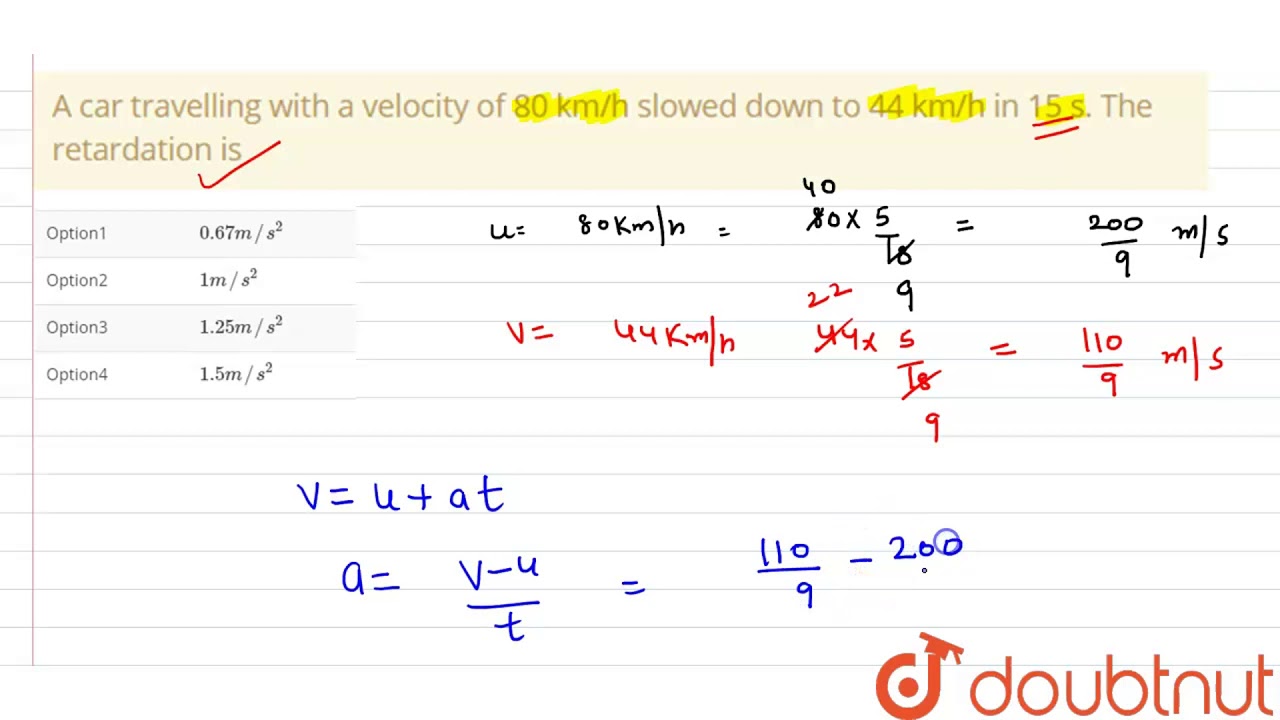 A car travelling with a velocity of 80 km/h slowed down to 44 km/h in 15 s. The
retardation is
Option1 0.67m/s²
Option2 1m/s²
Option3 1.25m/s²
Option4 1.5m/s²
40
u= 80Km/h = 80× 5/18 = 200/9 m/s
9
22
V= 44Km/h 44× 5/18 = 110/9 m/s
9
V=u+at
a= V-u/t = 110/9 - 200
doubtnut